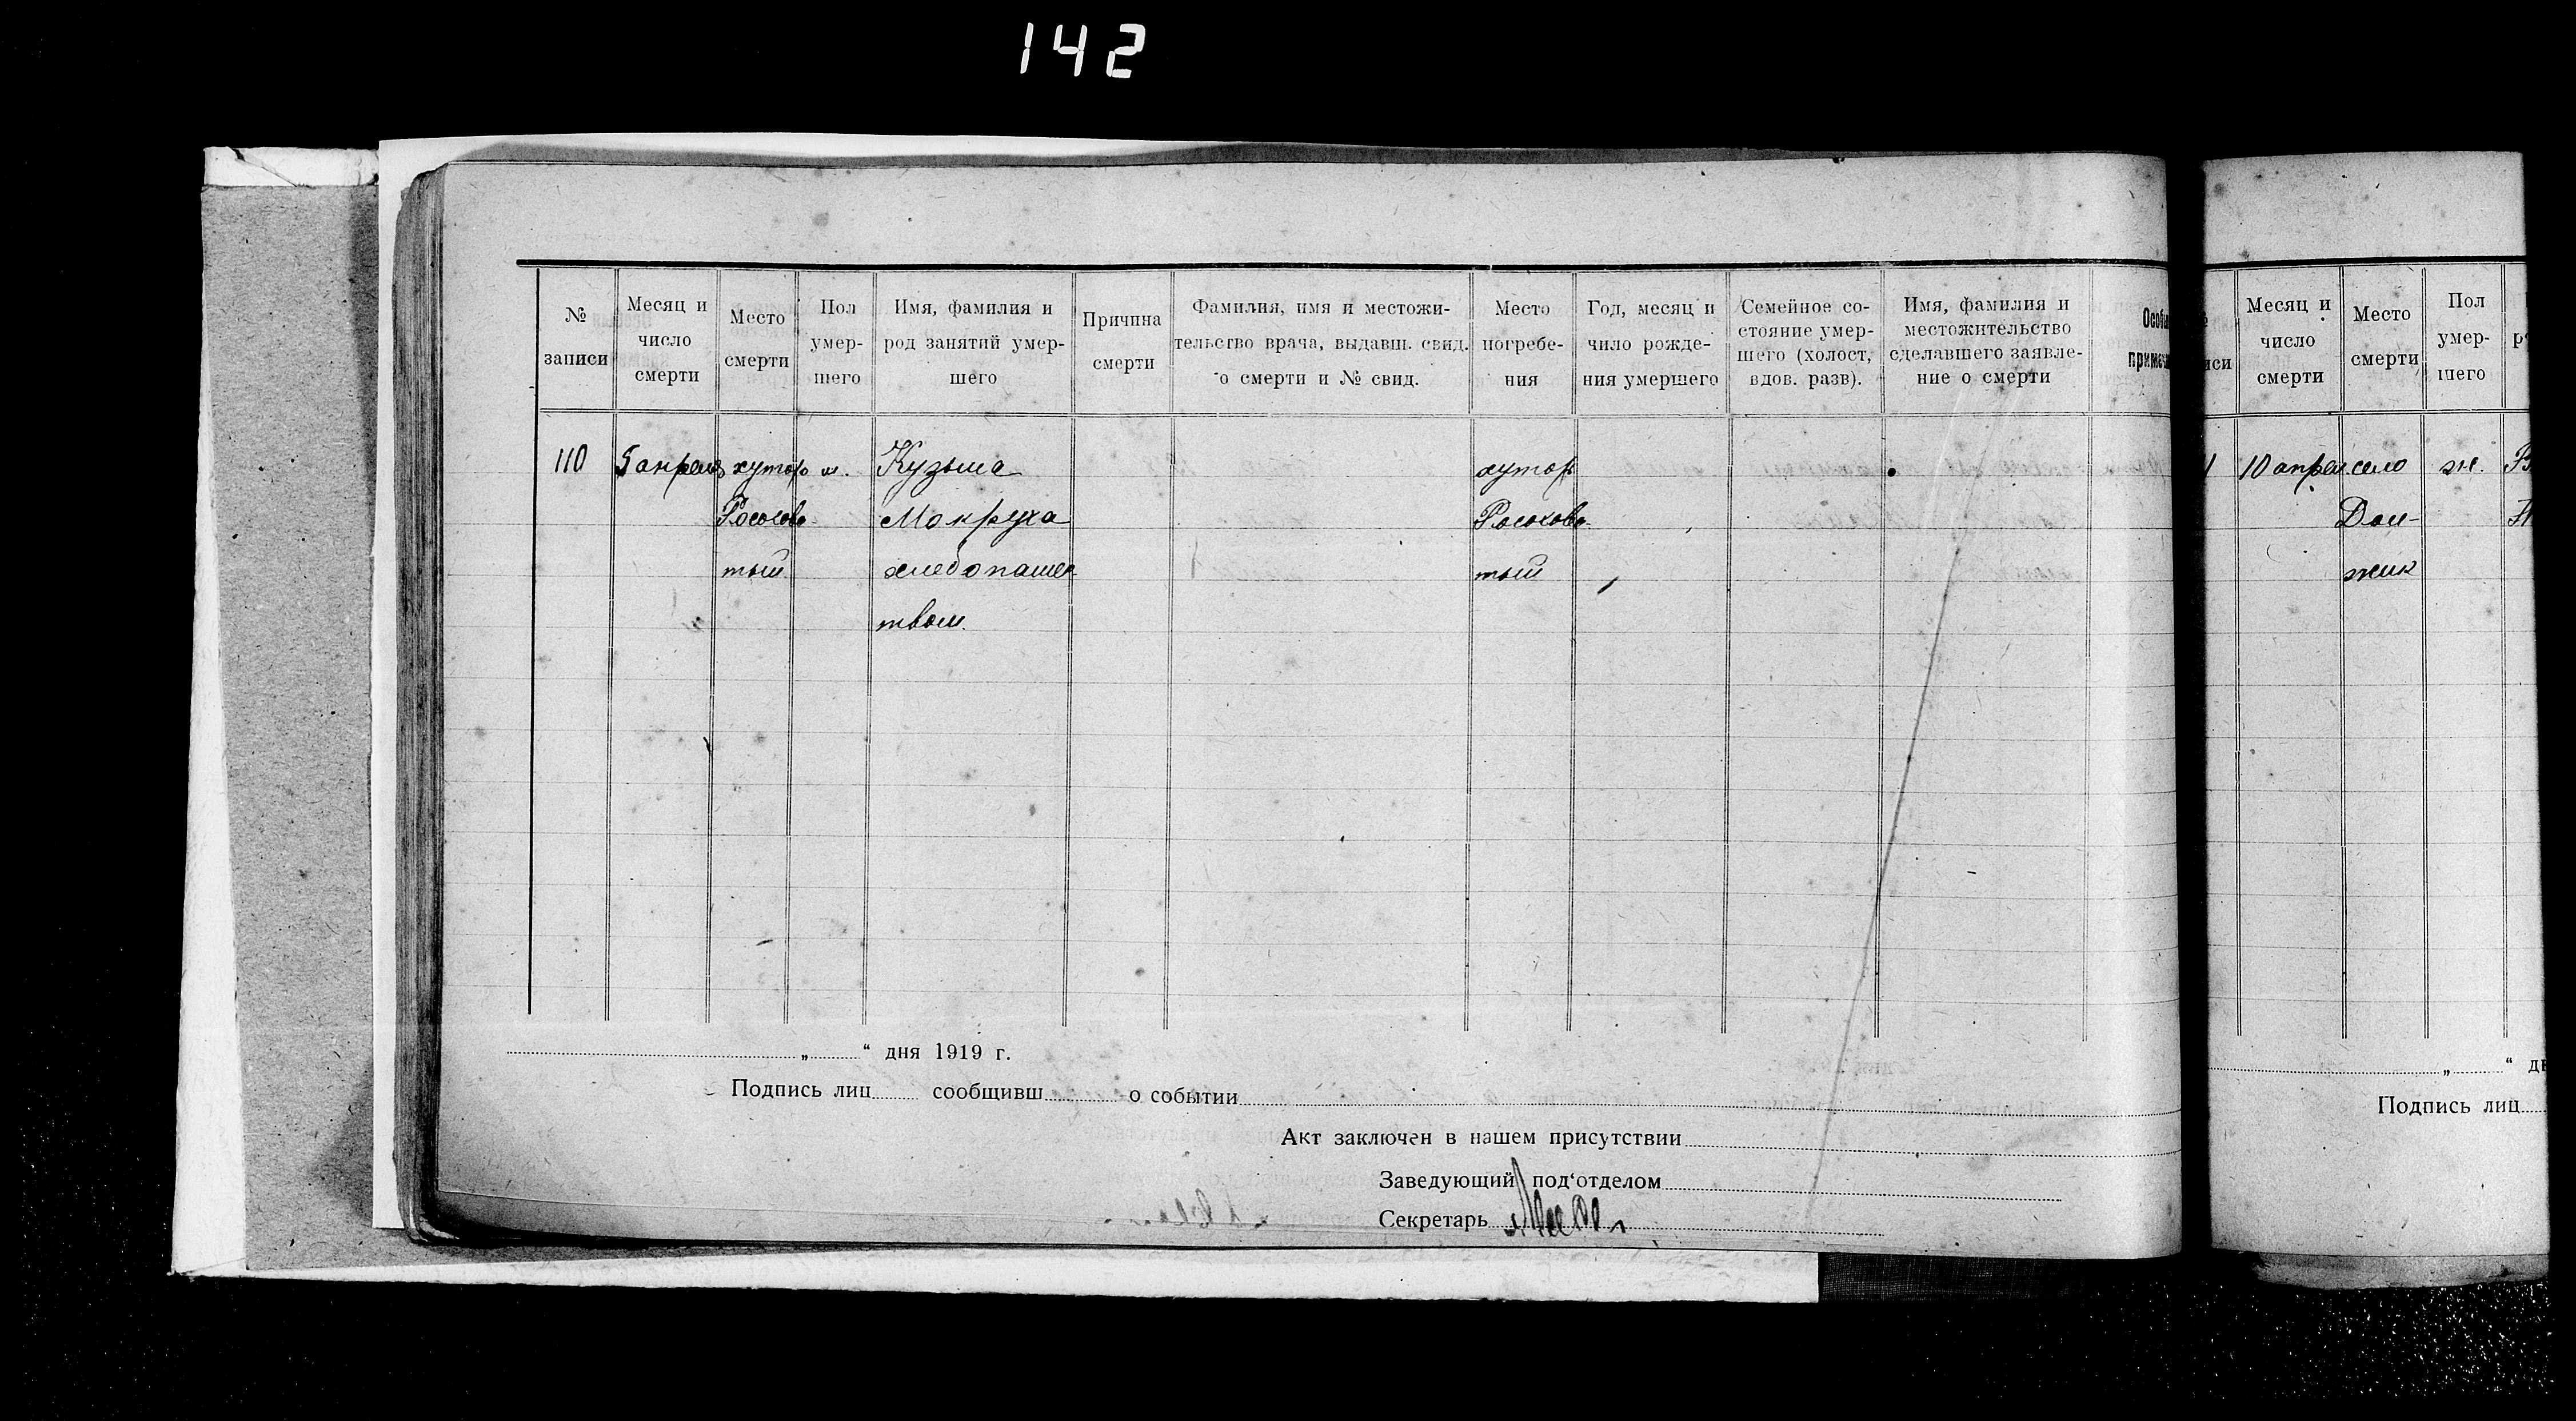 142
№ записи
Месяц и число смерти
Место смерти
Пол умер-шего
Имя, фамилия и род занятий умер-шего
Причина смерти
Фамилия, имя и местожи-тельство врача, выдавш. свид. о смерти и № свид.
Место погребе-ния
Год, месяц и чило рожде-ния умершего
Семейное со-стояние умер-шего (холост, вдов. разв).
Имя, фамилия и местожительство сделавшего заявле-ние о смерти
110
5 апреля
хутор
Рософова
тый
м.
Кузьма
Мокруха
хлебопашес
твом
хутор
Рософова
тый
„ “ дня 1919 г.
Подпись лиц сообщивш о событии
Акт заключен в нашем присутствии
Заведующий под‘отделом
Секретарь
Месяц и число смерти
Место смерти
Пол умер-шего
10 апрел.
село
Дол-
жик
ж.
Подпись лиц